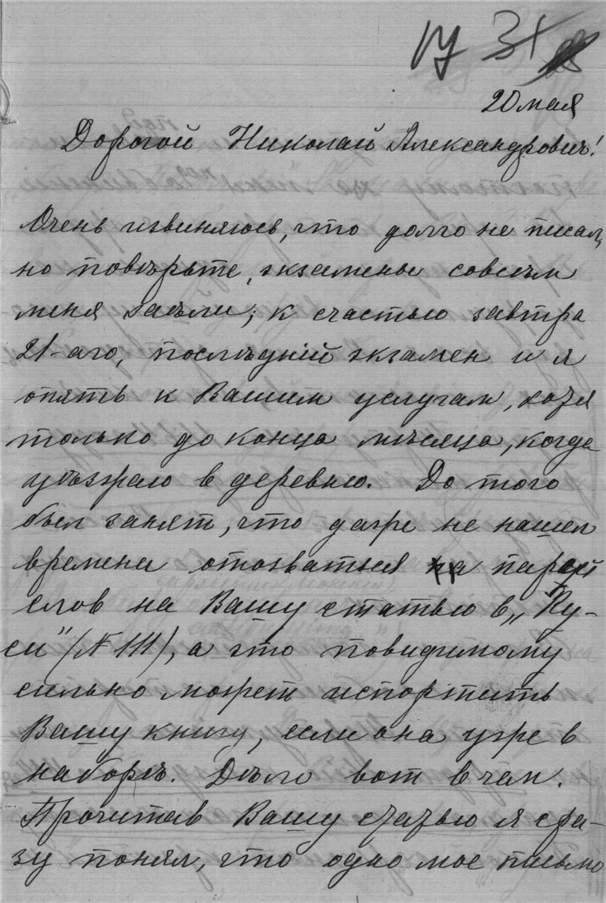 31
20 мая
Дорогой Николай Александрович!
Очень извиняюсь, что долго не писал,
но повѣрьте, экзамены совсѣм
меня заѣли; к счастью завтра
21-аго, послѣдній экзамен и я
опять к Вашим услугам, хотя
только до конца мѣсяца, когда
уѣзжаю в деревню. До того
был занят, что даже не нашел
времени отозваться на пару
слов на Вашу статью в „Ру-
си" (№ 111), а это повидимому
сильно может испортить
Вашу книгу, если она уже в
наборѣ. Дѣло вот в чем.
Прочитав Вашу статью я сра-
зу понял, что одно мое письмо